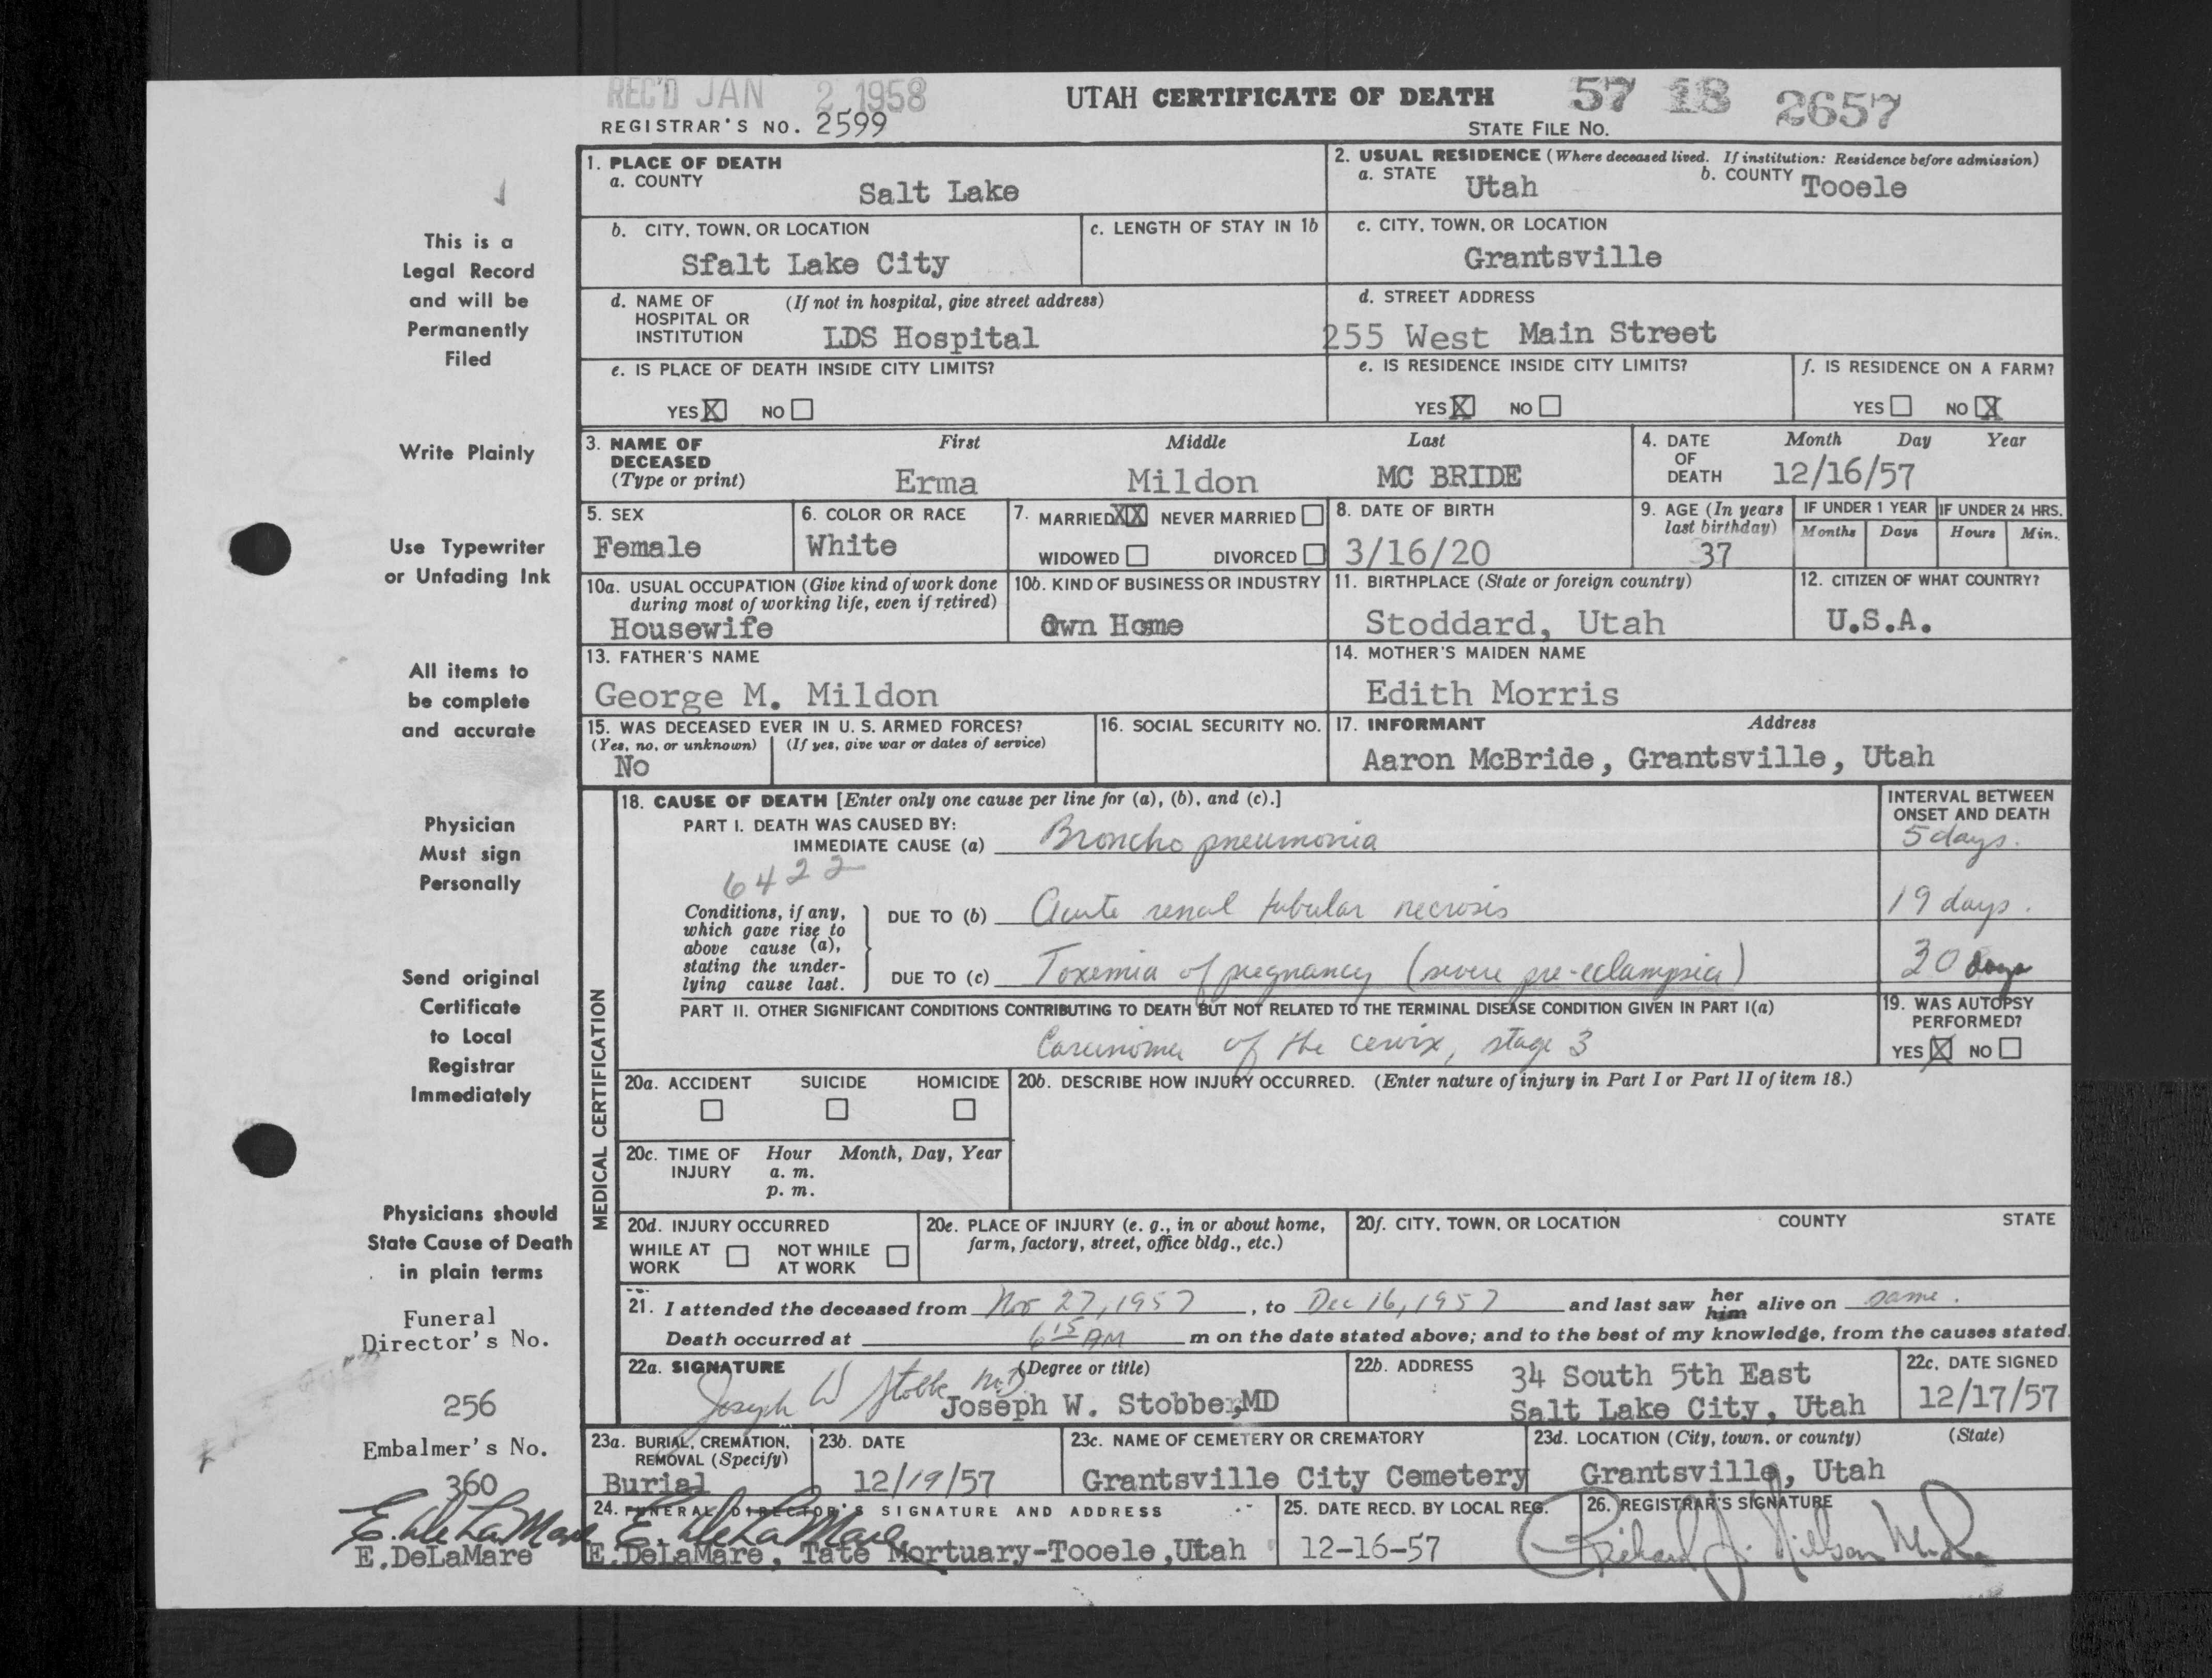 REC'D JAN 2 1958
UTAH CERTIFICATE OF DEATH 57 18 2657
REGISTRAR'S NO. 2599
STATE FILE NO.
This is a
Legal Record
and will be
Permanently
Filed
Write Plainly
Use Typewriter
or Unfading Ink
All items to
be complete
and accurate
Physician
Must sign
Personally
Send original
Certificate
to Local
Registrar
Immediately
Physicians should
State Cause of Death
in plain terms
Funeral
Director's No.
256
Embalmer's No.
360
E. DeLaMare
E.DeLaMare
1. PLACE OF DEATH
a. COUNTY
Salt Lake
2. USUAL RESIDENCE (Where deceased lived. If institution: Residence before admission)
a. STATE Utah b. COUNTY Tooele
b. CITY, TOWN, OR LOCATION
Sfalt Lake City
c. LENGTH OF STAY IN 1b
c. CITY, TOWN, OR LOCATION
Grantsville
d. NAME OF HOSPITAL OR INSTITUTION (If not in hospital, give street address)
LDS Hospital
d. STREET ADDRESS
255 West Main Street
e. IS PLACE OF DEATH INSIDE CITY LIMITS?
YES X NO
e. IS RESIDENCE INSIDE CITY LIMITS?
YES X NO
f. IS RESIDENCE ON A FARM?
YES NO X
3. NAME OF DECEASED (Type or print)
First Middle Last
Erma Mildon MC BRIDE
4. DATE OF DEATH Month Day Year
12/16/57
5. SEX
Female
6. COLOR OR RACE
White
7. MARRIED XX NEVER MARRIED
WIDOWED DIVORCED
8. DATE OF BIRTH
3/16/20
9. AGE (In years last birthday)
37
IF UNDER 1 YEAR
Months Days
IF UNDER 24 HRS.
Hours Min.
10a. USUAL OCCUPATION (Give kind of work done during most of working life, even if retired)
Housewife
10b. KIND OF BUSINESS OR INDUSTRY
Own Home
11. BIRTHPLACE (State or foreign country)
Stoddard, Utah
12. CITIZEN OF WHAT COUNTRY?
U.S.A.
13. FATHER'S NAME
George M. Mildon
14. MOTHER'S MAIDEN NAME
Edith Morris
15. WAS DECEASED EVER IN U. S. ARMED FORCES?
(Yes, no, or unknown) (If yes, give war or dates of service)
No
16. SOCIAL SECURITY NO.
17. INFORMANT Address
Aaron McBride, Grantsville, Utah
MEDICAL CERTIFICATION
18. CAUSE OF DEATH [Enter only one cause per line for (a), (b), and (c).]
INTERVAL BETWEEN ONSET AND DEATH
PART I. DEATH WAS CAUSED BY:
IMMEDIATE CAUSE (a) Broncho pneumonia 5 days.
6422
Conditions, if any, which gave rise to above cause (a), stating the underlying cause last.
DUE TO (b) Acute renal tubular necrosis 19 days.
DUE TO (c) Toxemia of pregnancy (severe pre-eclampsia) 30 days
PART II. OTHER SIGNIFICANT CONDITIONS CONTRIBUTING TO DEATH BUT NOT RELATED TO THE TERMINAL DISEASE CONDITION GIVEN IN PART I(a)
Carcinoma of the cervix, stage 3
19. WAS AUTOPSY PERFORMED?
YES X NO
20a. ACCIDENT SUICIDE HOMICIDE
20b. DESCRIBE HOW INJURY OCCURRED. (Enter nature of injury in Part I or Part II of item 18.)
20c. TIME OF INJURY Hour Month, Day, Year
a. m.
p. m.
20d. INJURY OCCURRED
WHILE AT WORK NOT WHILE AT WORK
20e. PLACE OF INJURY (e. g., in or about home, farm, factory, street, office bldg., etc.)
20f. CITY, TOWN, OR LOCATION COUNTY STATE
21. I attended the deceased from Nov 27, 1957, to Dec 16, 1957 and last saw her him alive on same.
Death occurred at 6 15 AM m on the date stated above; and to the best of my knowledge, from the causes stated.
22a. SIGNATURE (Degree or title)
Joseph W Stobbe MD
Joseph W. Stobbe,MD
22b. ADDRESS
34 South 5th East
Salt Lake City, Utah
22c. DATE SIGNED
12/17/57
23a. BURIAL, CREMATION, REMOVAL (Specify)
Burial
23b. DATE
12/19/57
23c. NAME OF CEMETERY OR CREMATORY
Grantsville City Cemetery
23d. LOCATION (City, town, or county) (State)
Grantsville, Utah
24. FUNERAL DIRECTOR'S SIGNATURE AND ADDRESS
E. DeLaMare
E.DeLaMare, Tate Mortuary-Tooele,Utah
25. DATE RECD. BY LOCAL REG.
12-16-57
26. REGISTRAR'S SIGNATURE
Richard J. Nielson